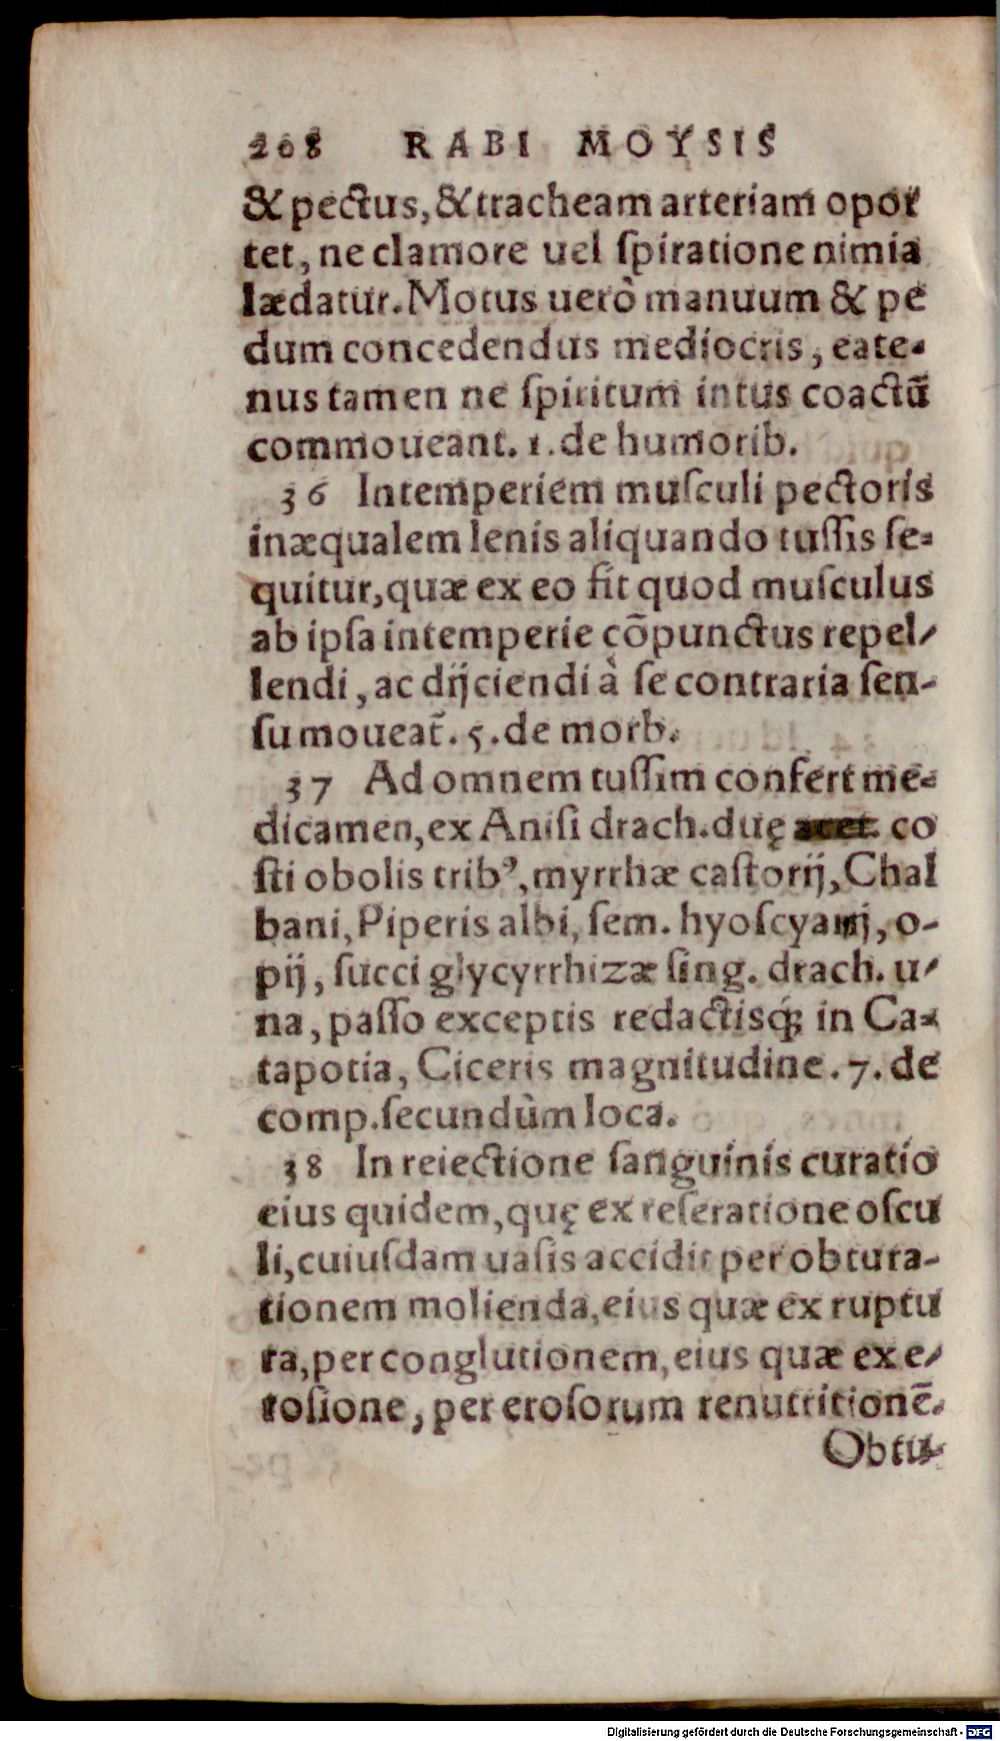 208 RABI MOYSIS
& pectus, & tracheam arteriam opor
tet, ne clamore uel ſpiratione nimia
lædatur. Motus uerò manuum & pe
dum concedendus mediocris, eate-
nus tamen ne ſpiritum intus coactū
commoueant. 1. de humorib.
36 Intemperiem muſculi pectoris
inæqualem lenis aliquando tuſſis ſe-
quitur, quæ ex eo fit quod muſculus
ab ipſa intemperie cōpunctus repel-
lendi, ac dijciendi à ſe contraria ſen-
ſu moueat̃. 5. de morb.
37 Ad omnem tuſſim confert me-
dicamen, ex Aniſi drach. duę co
ſti obolis tribꝰ, myrrhæ caſtorij, Chal
bani, Piperis albi, ſem. hyoſcyamj, o-
pij, ſucci glycyrrhizæ ſing. drach. u-
na, paſſo exceptis redactisq́ꝫ in Ca-
tapotia, Ciceris magnitudine. 7. de
comp. ſecundùm loca.
38 In reiectione ſanguinis curatio
eius quidem, quę ex reſeratione oſcu
li, cuiuſdam uaſis accidit per obtura-
tionem molienda, eius quæ ex ruptu
ra, per conglutionem, eius quæ ex e-
roſione, per eroſorum renutritionē.
Obtu-
Digitalisierung gefördert durch die Deutsche Forschungsgemeinschaft - DFG